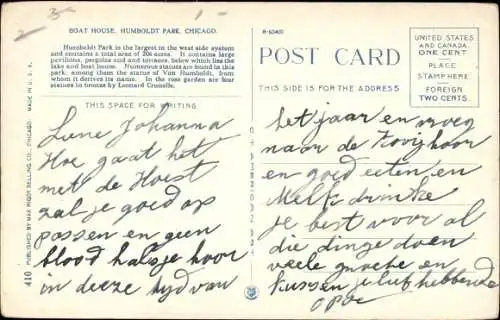 2 3c 1 -
BOAT HOUSE, HUMBOLDT PARK, CHICAGO.
Humboldt Park is the largest in the west side system
and contains a total area of 206 acres. It contains large
pavilions, pergolas and and terraces, below which lies the
lake and boat house. Numerous statues are found in this
park, among them the statue of Von Humboldt, from
whom it derives its name. In the rose garden are four
statues in bronze by Leonard Crunelle.
THIS SPACE FOR WRITING
Lieve Johanna
Hoe gaat het
met de Hoest
zal je goed op
passen en geen
blood halsje hoor
in deeze tyd van
R-63401
POST CARD
THIS SIDE IS FOR THE ADDRESS
UNITED STATES
AND CANADA
ONE CENT
PLACE
STAMP HERE
FOREIGN
TWO CENTS.
het jaar en vroeg
naar de Kooy hoor
en goed eeten en
Melk drinke
je best voor al
die dinge doen
veele groete en
Kussen je liefhebbende
opoe
410 PUBLISHED BY MAX RIGOT SELLING CO., CHICAGO. MADE IN U. S. A.